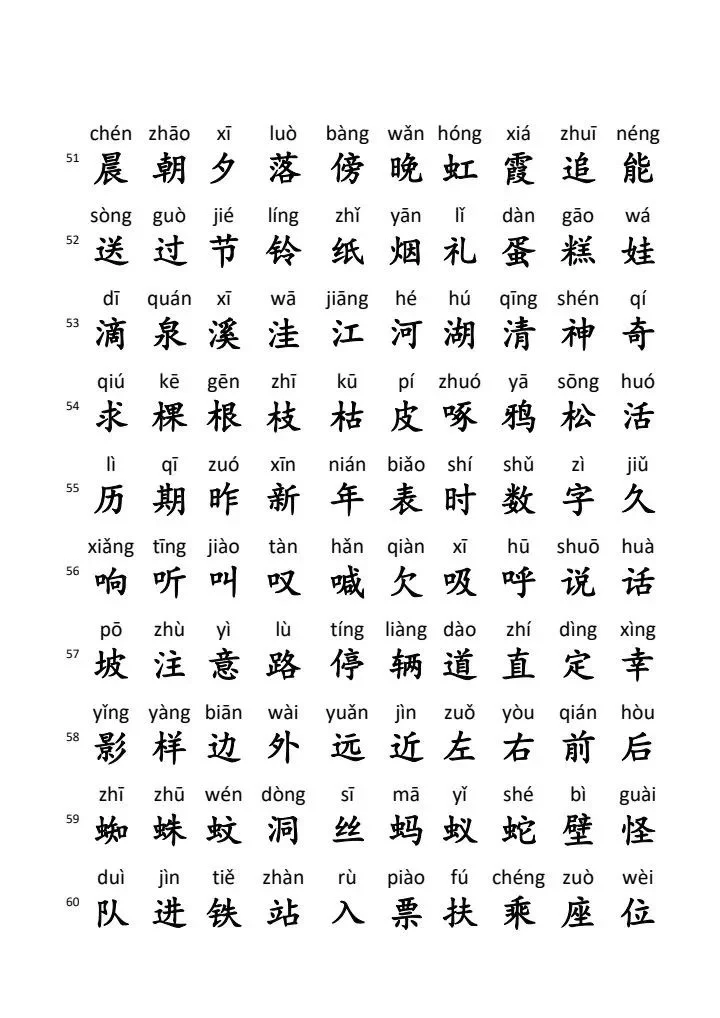 chén zhāo xī luò bàng wǎn hóng xiá zhuī néng
51 晨 朝 夕 落 傍 晚 虹 霞 追 能
sòng guò jié líng zhǐ yān lǐ dàn gāo wá
52 送 过 节 铃 纸 烟 礼 蛋 糕 娃
dī quán xī wā jiāng hé hú qīng shén qí
53 滴 泉 溪 洼 江 河 湖 清 神 奇
qiú kē gēn zhī kū pí zhuó yā sōng huó
54 求 棵 根 枝 枯 皮 啄 鸦 松 活
lì qī zuó xīn nián biǎo shí shǔ zì jiǔ
55 历 期 昨 新 年 表 时 数 字 久
xiǎng tīng jiào tàn hǎn qiàn xī hū shuō huà
56 响 听 叫 叹 喊 欠 吸 呼 说 话
pō zhù yì lù tíng liàng dào zhí dìng xìng
57 坡 注 意 路 停 辆 道 直 定 幸
yǐng yàng biān wài yuǎn jìn zuǒ yòu qián hòu
58 影 样 边 外 远 近 左 右 前 后
zhī zhū wén dòng sī mā yǐ shé bì guài
59 蜘 蛛 蚊 洞 丝 蚂 蚁 蛇 壁 怪
duì jìn tiě zhàn rù piào fú chéng zuò wèi
60 队 进 铁 站 入 票 扶 乘 座 位